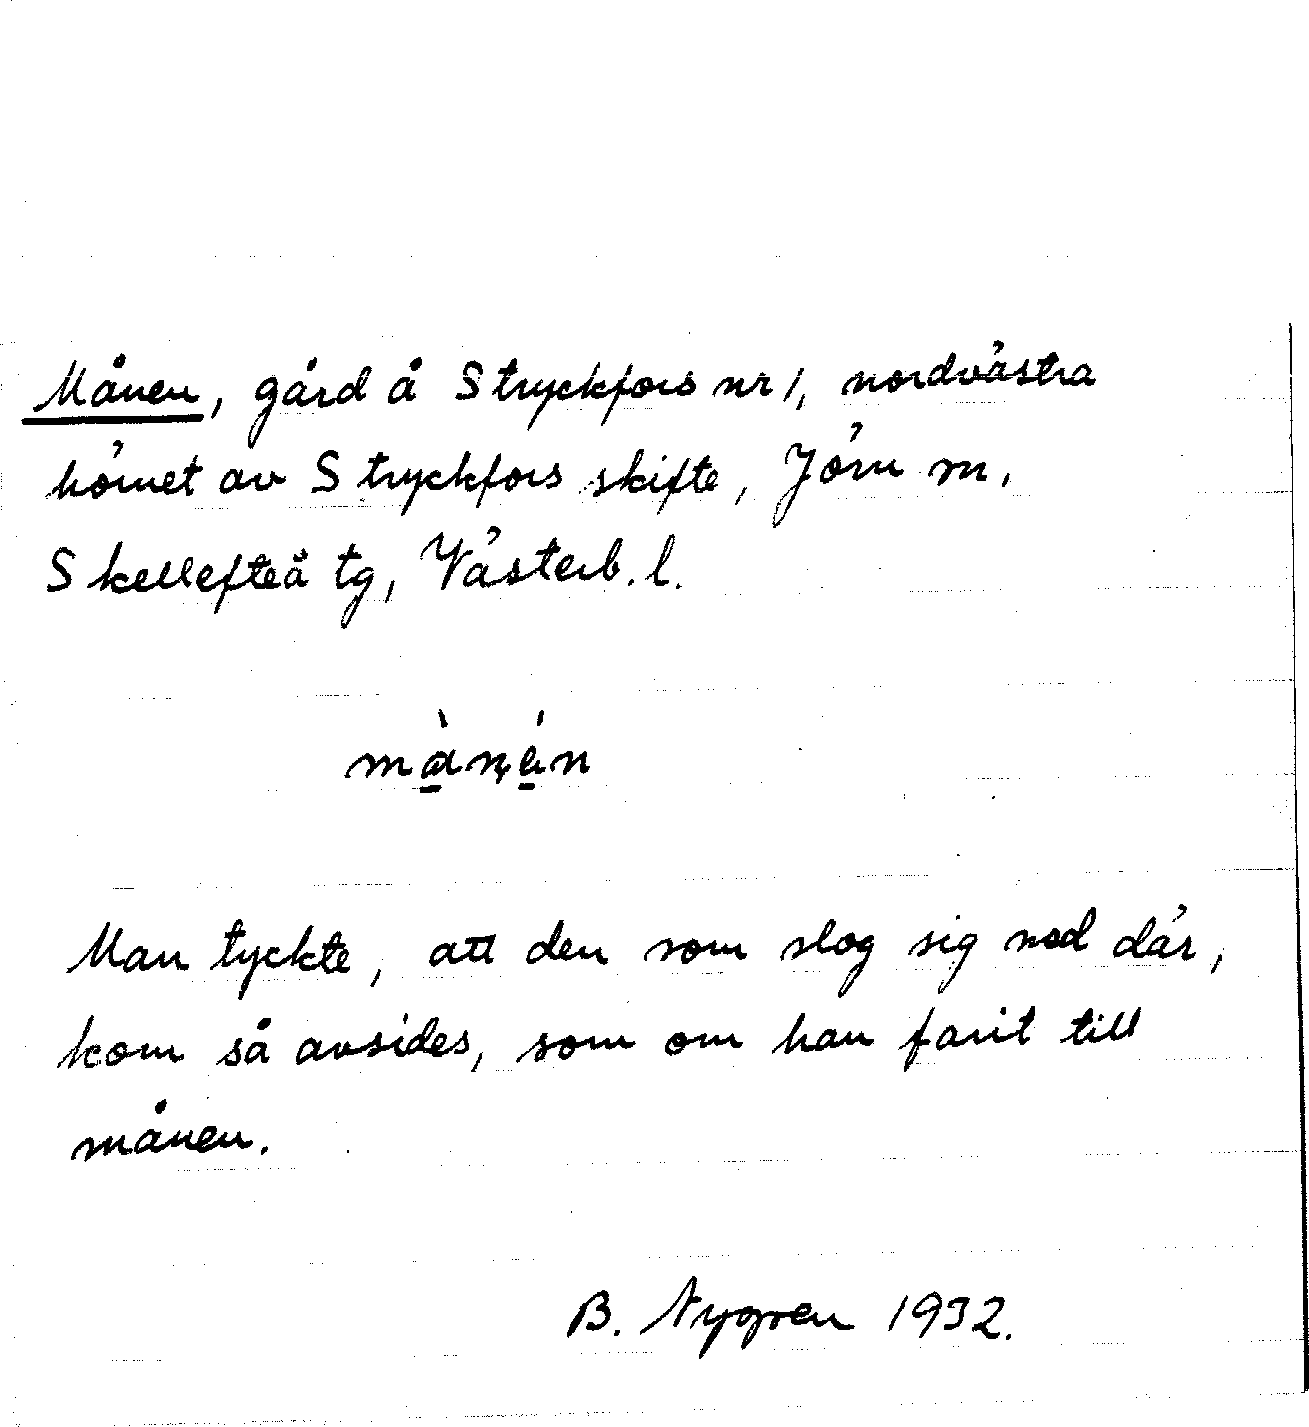 Månen, gård å Stryckfors nr 1, nordvästra
hörnet av Stryckfors skifte, Jörn sn,
Skellefteå tg, Västerb. l.
Man tyckte, att den som slog sig ned där,
kom så avsides, som om han farit till
månen.
B. Nygren 1932.